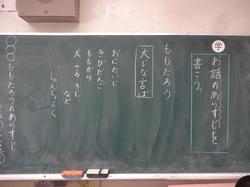 学
お話のあらすじを
書こう。
ももたろう
大じな言ば
おにたいじ
きびだんご
ももから
犬 さる きじ
など
じゅんじょよく
〇〇〇ももたろうのあらすじ